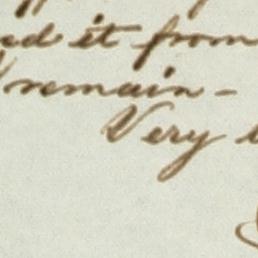 ed it from
I remain -
Very